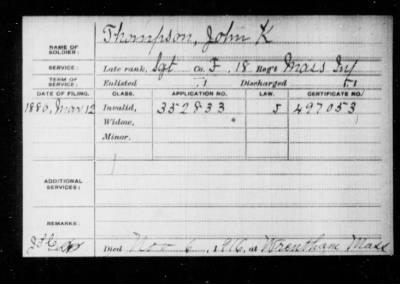 Thompson, John K
NAME OF SOLDIER:
SERVICE: Late rank, Sgt Co. F, 18 Reg't Mass Inf
TERM OF SERVICE: Enlisted , 1 Discharged , 1
DATE OF FILING. CLASS. APPLICATION NO. LAW. CERTIFICATE NO.
1880, Mar 12 Invalid, 352833 J 497053
Widow,
Minor,
ADDITIONAL SERVICES:
REMARKS:
Died Nov 6, 1916, at Wrentham Mass